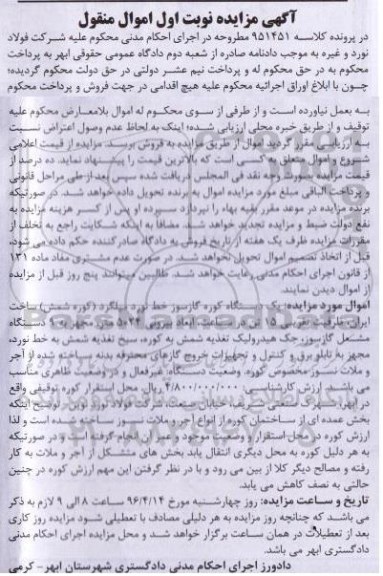 آگهی مزایده نوبت اول اموال منقول
در پرونده کلاسه ۹۵۱۴۵۱ مطروحه در اجرای احکام مدنی محکوم علیه شرکت فولاد
نورد و غیره به موجب دادنامه صادره از شعبه دوم دادگاه عمومی حقوقی ابهر به پرداخت
محکوم به در حق محکوم له و پرداخت نیم عشر دولتی در حق دولت محکوم گردیده؛
چون با ابلاغ اوراق اجرائیه محکوم علیه هیچ اقدامی در جهت فروش و پرداخت محکوم
به بعمل نیاورده است و از طرفی از سوی محکوم له اموال بلامعارض محکوم علیه
توقیف و از طریق خبره محلی ارزیابی شد؛ اینک به لحاظ عدم وصول اعتراض نسبت
به ارزیابی مقرر گردید اموال از طریق مزایده به فروش برسد. مزایده از قیمت اعلامی
شروع و اموال متعلق به کسی است که بالاترین قیمت را پیشنهاد نماید. ده درصد از
قیمت مزایده بصورت وجه نقد فی المجلس دریافت شده سپس بعد از طی مراحل قانونی
و پرداخت الباقی مبلغ مورد مزایده اموال به برنده تحویل داده خواهد شد. در صورتیکه
برنده مزایده در موعد مقرر بقیه بهاء را نپردازد سپرده او پس از کسر هزینه مزایده به
نفع دولت ضبط و مزایده تجدید خواهد شد. مضافا به اینکه شکایت راجع به تخلف از
مقررات مزایده ظرف یک هفته از تاریخ فروش به دادگاه صادرکننده حکم داده می شود،
قبل از اتخاذ تصمیم اموال تحویل نخواهد شد. در صورت عدم مشتری مفاد ماده ۱۳۱
از قانون اجرای احکام مدنی رعایت خواهد شد. طالبین میتوانند پنج روز قبل از مزایده
از اموال دیدن نمایند.
اموال مورد مزایده: یک دستگاه کوره گازسوز خط نورد میلگرد (کوره شمش) ساخت
ایران، ظرفیت تقریبی ۱۵ تن در ساعت، ابعاد بیرونی متر مجهز به ۹ دستگاه
مشعل گازسوز، جک هیدرولیک تغذیه شمش به کوره، سیخ تغذیه شمش به خط نورد
مجهز به تابلو برق و کنترل و تجهیزات خروج گازهای محترقه بدنه ساخته شده از آجر
و ملات نسوز مخصوص کوره. وضعیت دستگاه: غیرفعال و در وضعیت ظاهری مناسب
می باشد. ارزش کارشناسی: ۴/۸۰۰/۰۰۰/۰۰۰ ریال. محل استقرار کوره توقیفی واقع
در ابهر، شهرک صنعتی شریف، خیابان صنعت، شرکت فولاد نورد نوین. توضیح اینکه
بخش عمده ای از ساختمان کوره از انواع آجر و ملات نسوز ساخته شده است و لذا
ارزش کوره در محل استقرار و وضعیت موجود برآورد انجام گرفته است و در صورتیکه
به هر دلیل کوره به محل دیگری انتقال یابد بخش های متشکل از آجر و ملات به کار
رفته و مصالح دیگر کلا از بین می رود و با در نظر گرفتن این مهم ارزش کوره در چنین
حالتی به نصف کاهش می یابد.
تاریخ و ساعت مزایده: روز چهارشنبه مورخ ۹۶/۴/۱۴ ساعت ۸ الی ۹ لازم به ذکر
می باشد که چنانچه روز مزایده به هر دلیلی مصادف با تعطیلی شود مزایده روز کاری
بعد از تعطیلات در همان ساعت برگزار خواهد شد و محل مزایده اجرای احکام مدنی
دادگستری ابهر می باشد.
دادورز اجرای احکام مدنی دادگستری شهرستان ابهر- کرمی